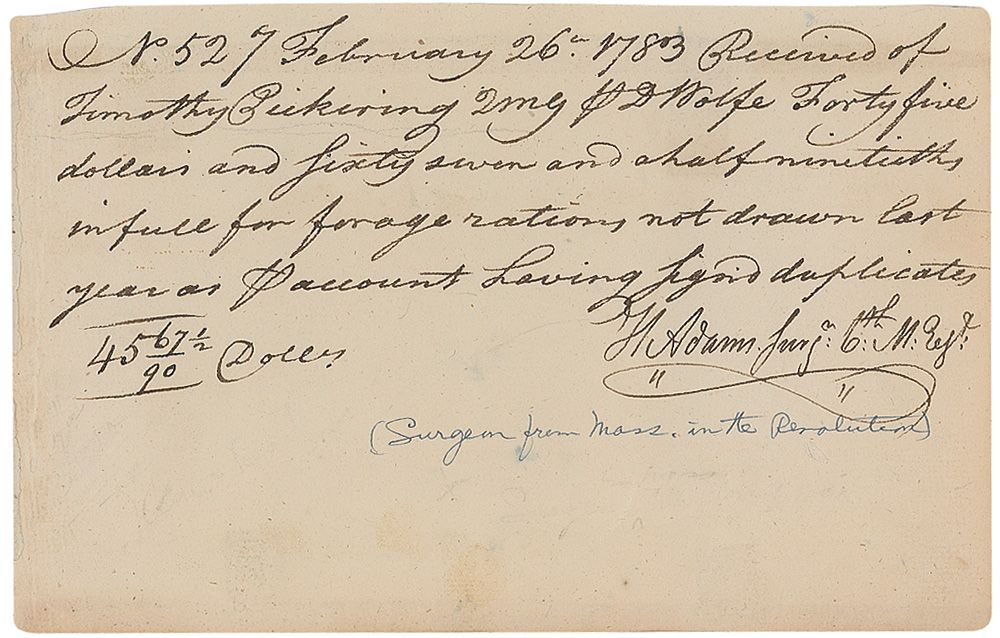 No. 527 February 26th 1783 Received of
Timothy Pickering QMG ⅌ D Wolfe Forty five
dollars and Sixty seven and a half ninetieths
in full for forage rations not drawn last
year as ⅌ account having sign'd duplicates
45 67½/90 Dolls
H Adams Surgn. 6th. M. Regt.
(Surgeon from Mass. in the Revolution)